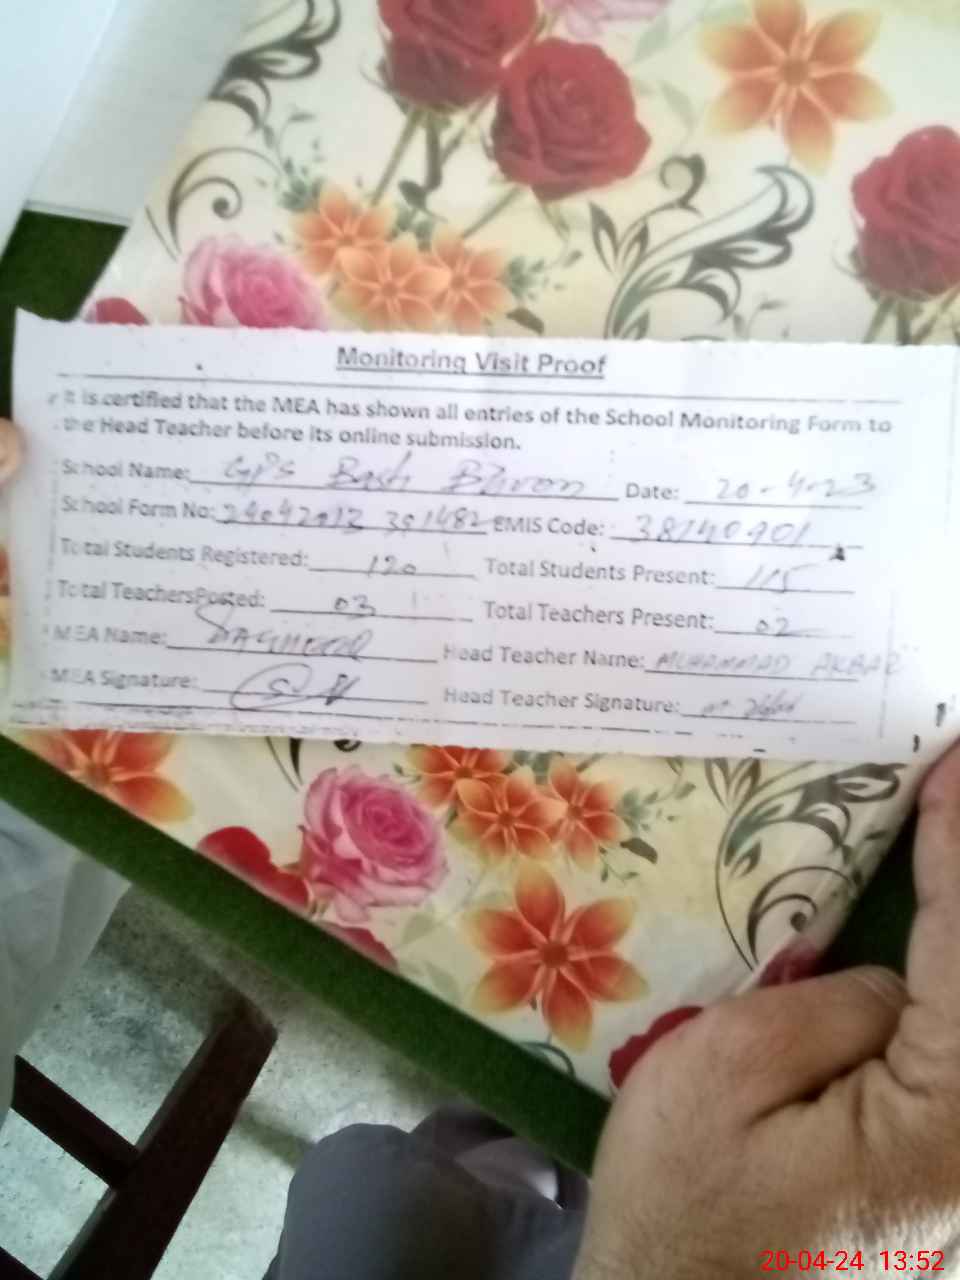 Monitoring Visit Proof
It is certified that the MEA has shown all entries of the School Monitoring Form to
the Head Teacher before its online submission.
School Name: GPS Bash Date: 20-4-23
School Form No: EMIS Code: 38140901
Total Students Registered: 120 Total Students Present: 115
Total Teachers Posted: 03 Total Teachers Present: 02
MEA Name: Head Teacher Name: MUHAMMAD AKBAR
MEA Signature: Head Teacher Signature:
20-04-24 13:52